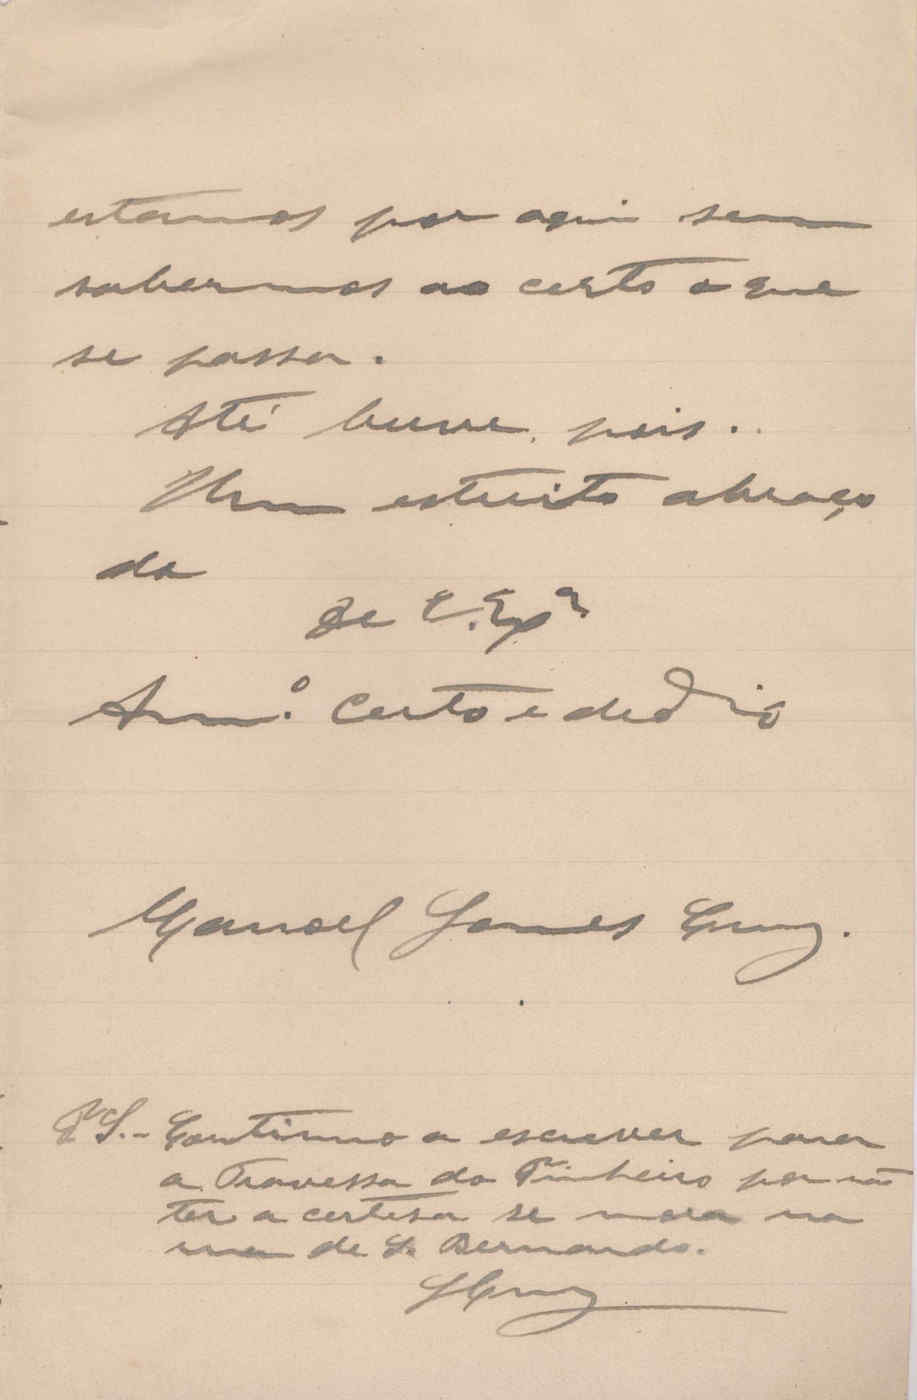 estamos por aqui sem
sabermos ao certo o que
se passa.
Até breve, pois..
Um estreito abraço
do
De V. Exª
Amº. certo e dedº
Manoel Gomes Cruz.
PS.- Continuo a escrever para
a Travessa do Pinheiro por não
ter a certesa se mora na
rua de S. Bernardo.
GCruz